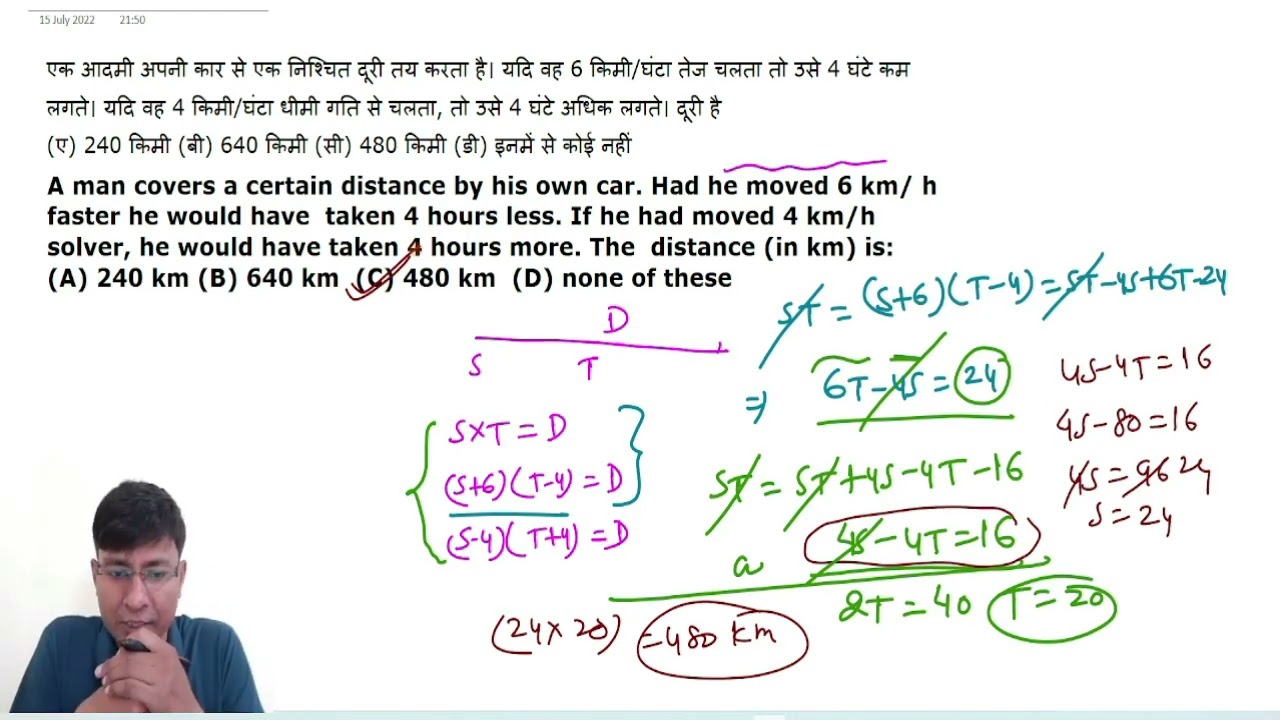 15 July 2022 21:50
एक आदमी अपनी कार से एक निश्चित दूरी तय करता है। यदि वह 6 किमी/घंटा तेज चलता तो उसे 4 घंटे कम
लगते। यदि वह 4 किमी/घंटा धीमी गति से चलता, तो उसे 4 घंटे अधिक लगते। दूरी है
(ए) 240 किमी (बी) 640 किमी (सी) 480 किमी (डी) इनमें से कोई नहीं
A man covers a certain distance by his own car. Had he moved 6 km/ h
faster he would have taken 4 hours less. If he had moved 4 km/h
solver, he would have taken 4 hours more. The distance (in km) is:
(A) 240 km (B) 640 km (C) 480 km (D) none of these
D
S T
S×T = D
(S+6) (T-4) = D
(S-4) (T+4) = D
ST = (S+6) (T-4) = ST-4S+6T-24
⇒ 6T-4S = 24
ST = ST+4S-4T-16
4S-4T=16
2T = 40 T = 20
4S-4T=16
4S-80=16
4S = 96 24
S = 24
(24×20) =480 km